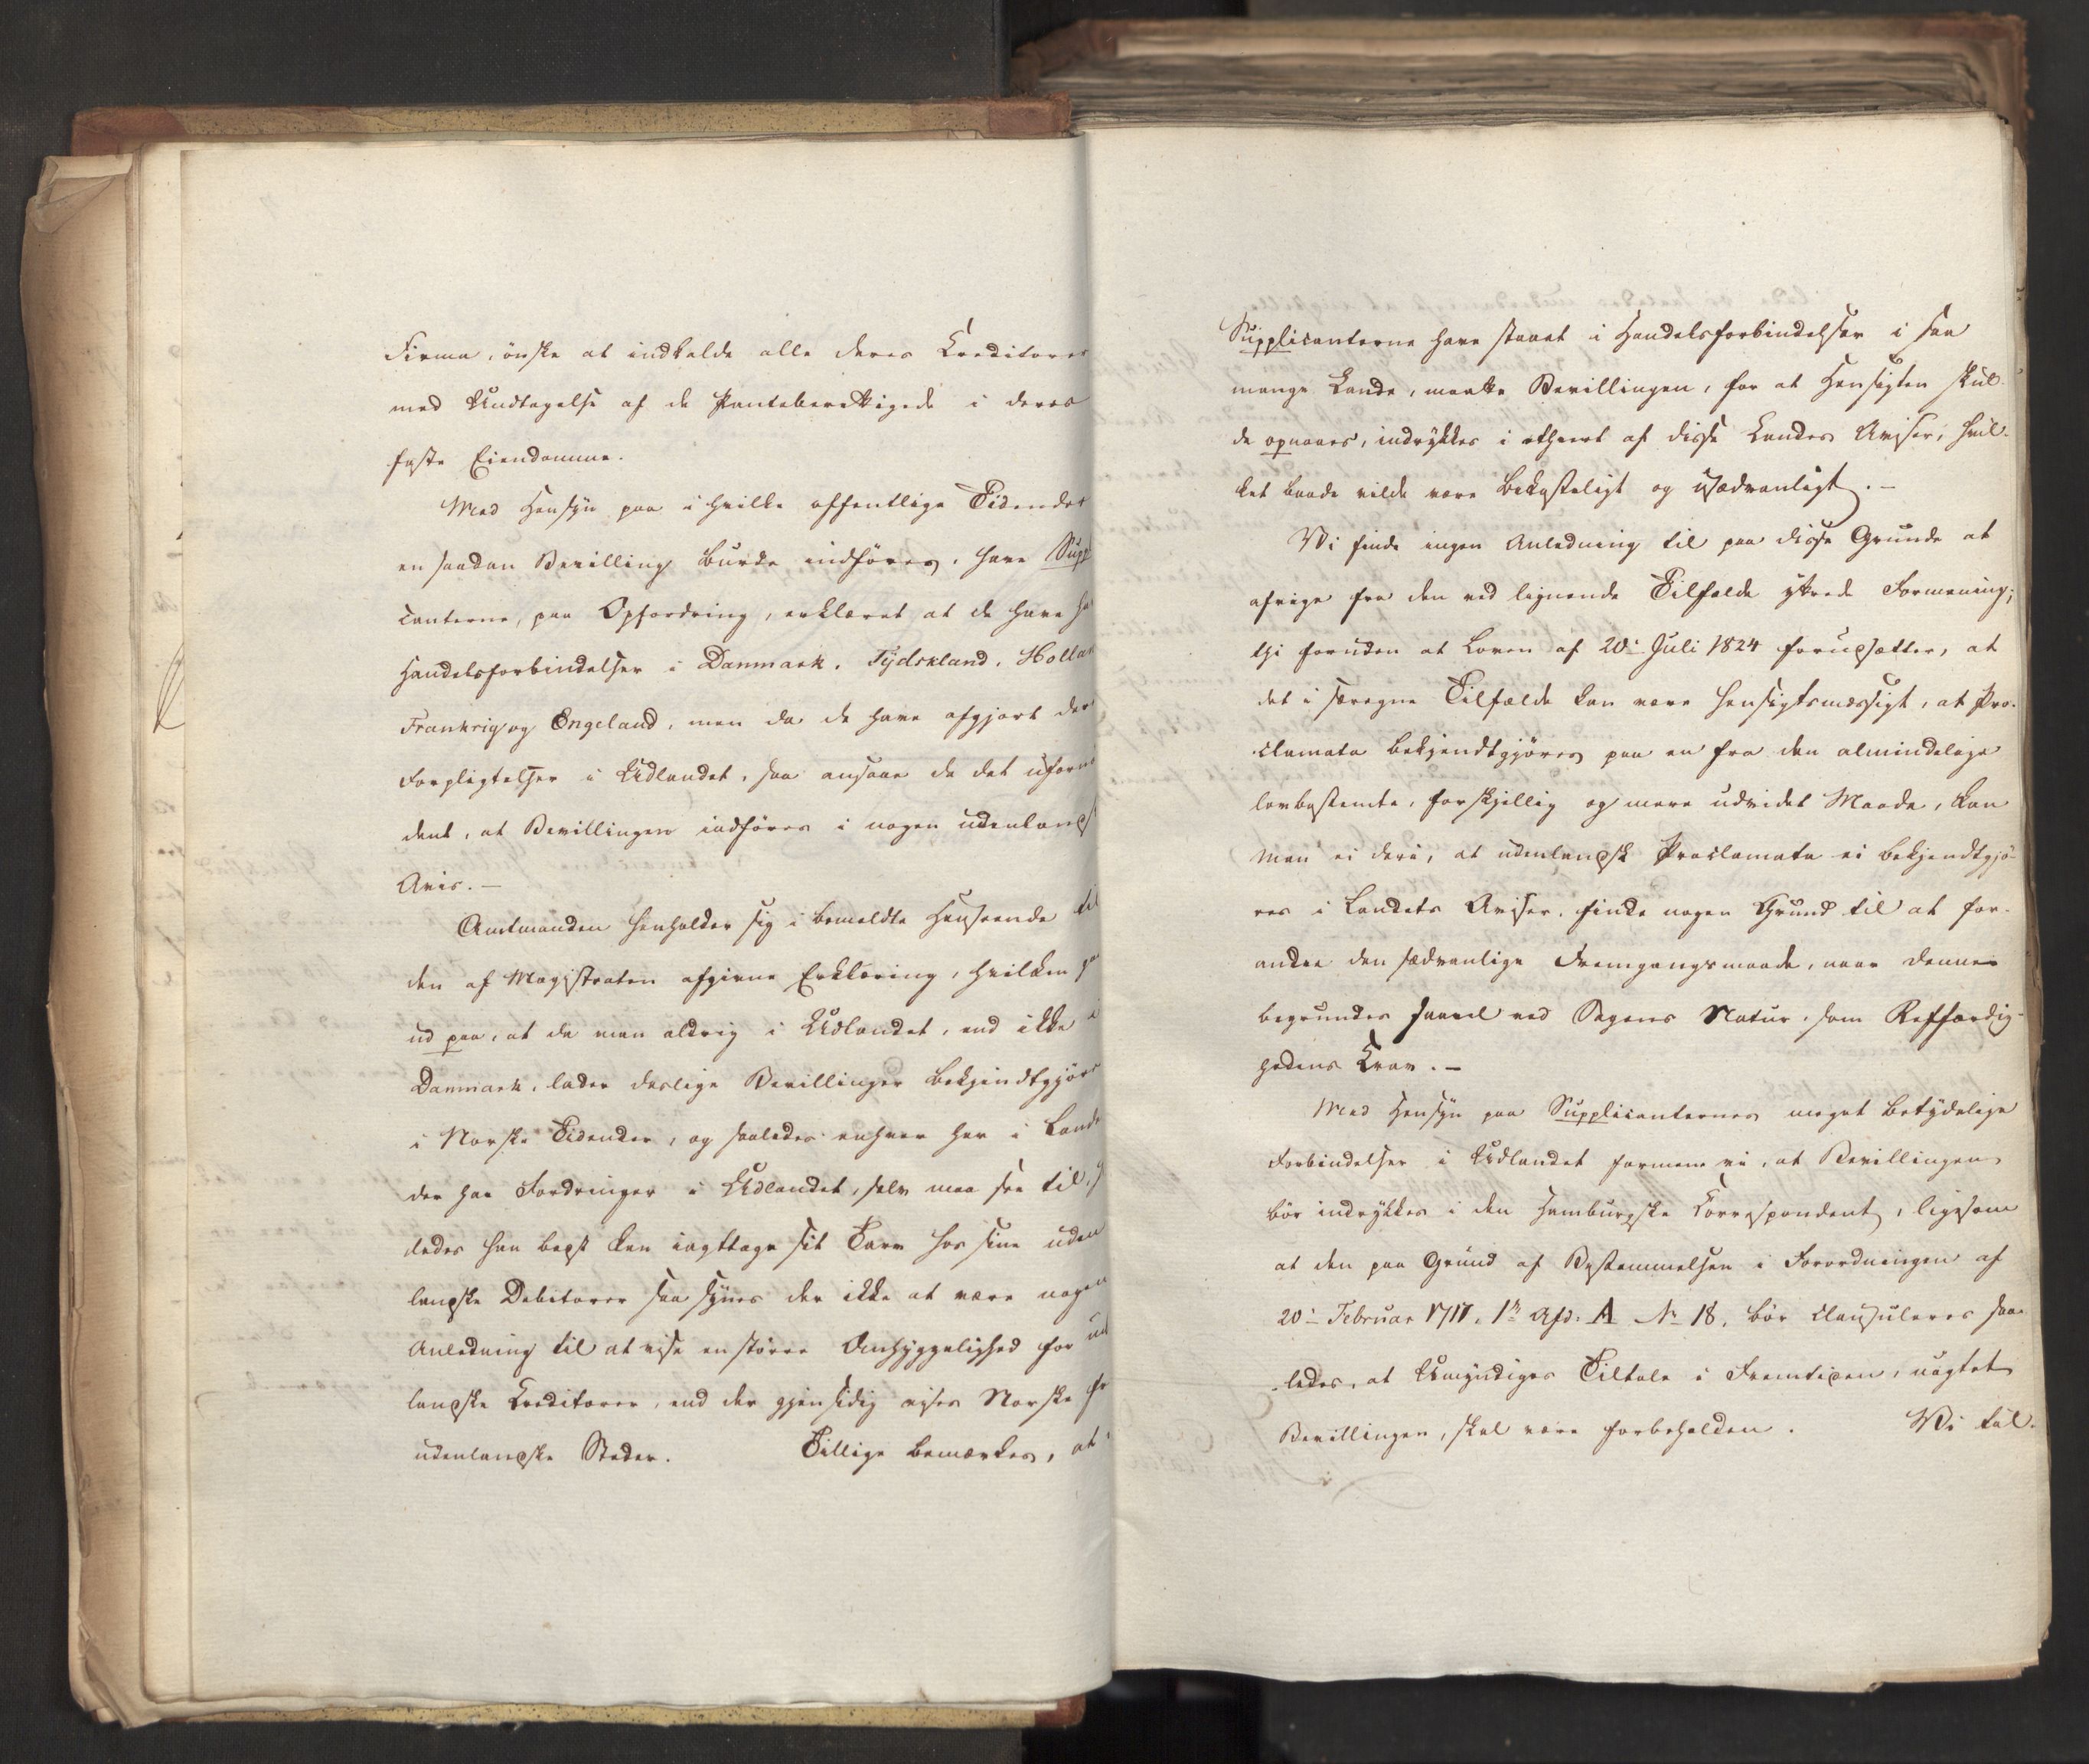 Firma, ønske at indkalde alle deres Creditorer
med Undtagelse af de Panteberettigede i deres
faste Eiendomme.
Med Hensyn paa i hvilke offentlige Tidender
en saadan Bevilling burde indføres, have Suppl
canterne, paa Opfordring, erklæret at de have ha
Handelsforbindelser i Danmark, Tydskland, Hollan
Frankrig og Engeland, men da de have afgjort der
Forpligtelser i Udlandet, saa ansaae de det uforn
dent, at Bevillingen indføres i nogen udenlands
Avis.—
Amtmanden henholder sig i bemeldte Henseende til
den af Magistraten afgivne Erklæring, hvilken gaa
ud paa, at da man aldrig i Udlandet, end ikke i
Danmark, lader deslige Bevillinger bekjendtgjøre
i Norske Tidender, og saaledes enhver her i Lande
der har Fordringer i Udlandet, selv maa see til,
ledes han bedst kan iagttage sit Tarv hos sine uden
landske Debitorer saa synes der ikke at være nogen
Anledning til at vise en større Omhyggelighed for ud
landske Creditorer, end der gjensidig vises Norske fr
udenlandske Steder. Tillige bemærkes, at
Supplicanterne have staaet i Handelsforbindelser i saa
mange Lande, maatte Bevillingen, for at Hensigten skul-
de opnaaes, indrykkes i ethvert af disse Landes Aviser, hvil-
ket baade vilde være bekosteligt og usædvanligt.—
Vi finde ingen Anledning til paa disse Grunde at
afvige fra den ved lignende Tilfælde yttrede Formening;
thi foruden at Loven af 20de Juli 1824 forudsætter, at
det i særegne Tilfælde kan være hensigtsmæssigt, at Pro-
clamata bekjendtgjøres paa en fra den almindelige
lovbestemte, forskjellig og mere udvidet Maade, kan
man ei deri, at udenlandsk Proclamata ei bekjendtgjø-
res i Landets Aviser, finde nogen Grund til at for-
andre den sædvanlige Fremgangsmaade, naar denne
begrundes saavel ved Sagens Natur, som Retfærdig-
hedens Krav.—
Med Hensyn paa Supplicanternes meget betydelige
Forbindelser i Udlandet formene vi, at Bevillingen
bør indrykkes i den Hamburgske Correspondent, ligesom
at den paa Grund af Bestemmelsen i Forordningen af
20de Februar 1717, 1ste Afd: A No 18, bør clausuleres saa-
ledes, at Umyndiges Tiltale i Fremtiden, uagtet
Bevillingen, skal være forbeholden. Vi til-